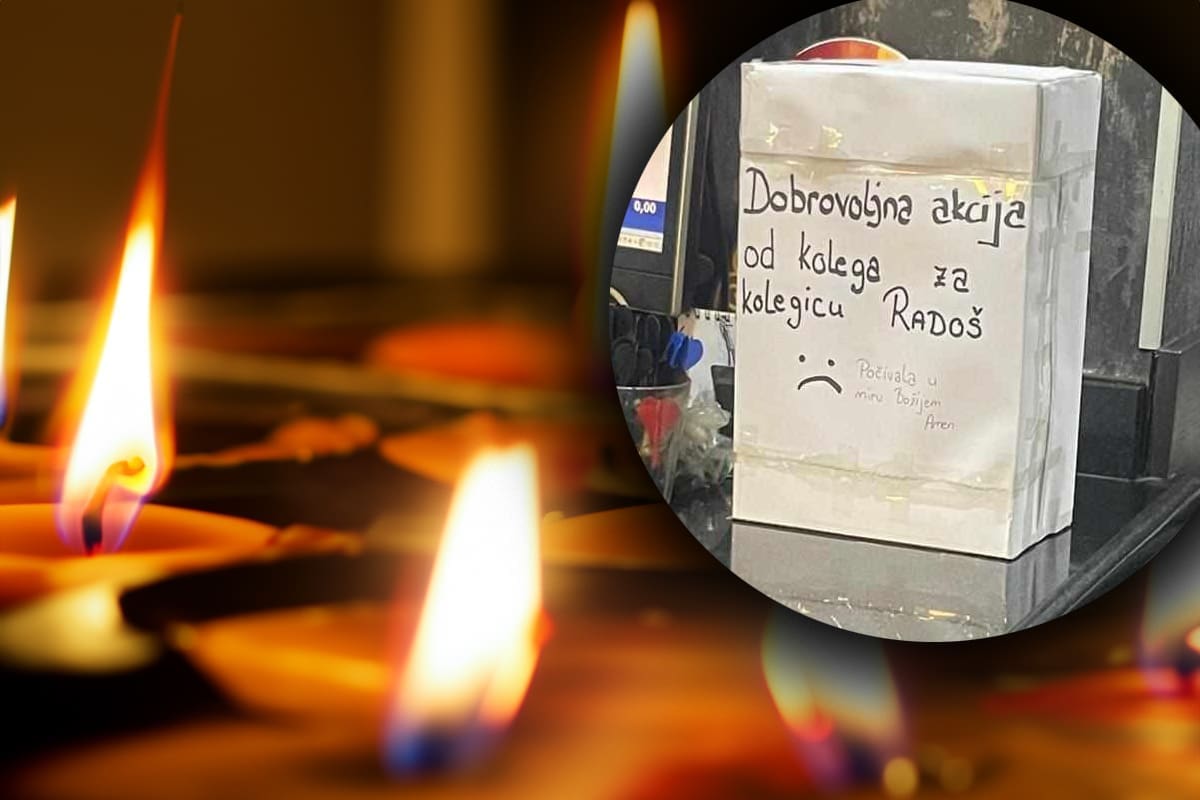 0,00
Dobrovoljna akcija
od kolega za
kolegicu RADOŠ
Počivala u
miru Božijem
Amen